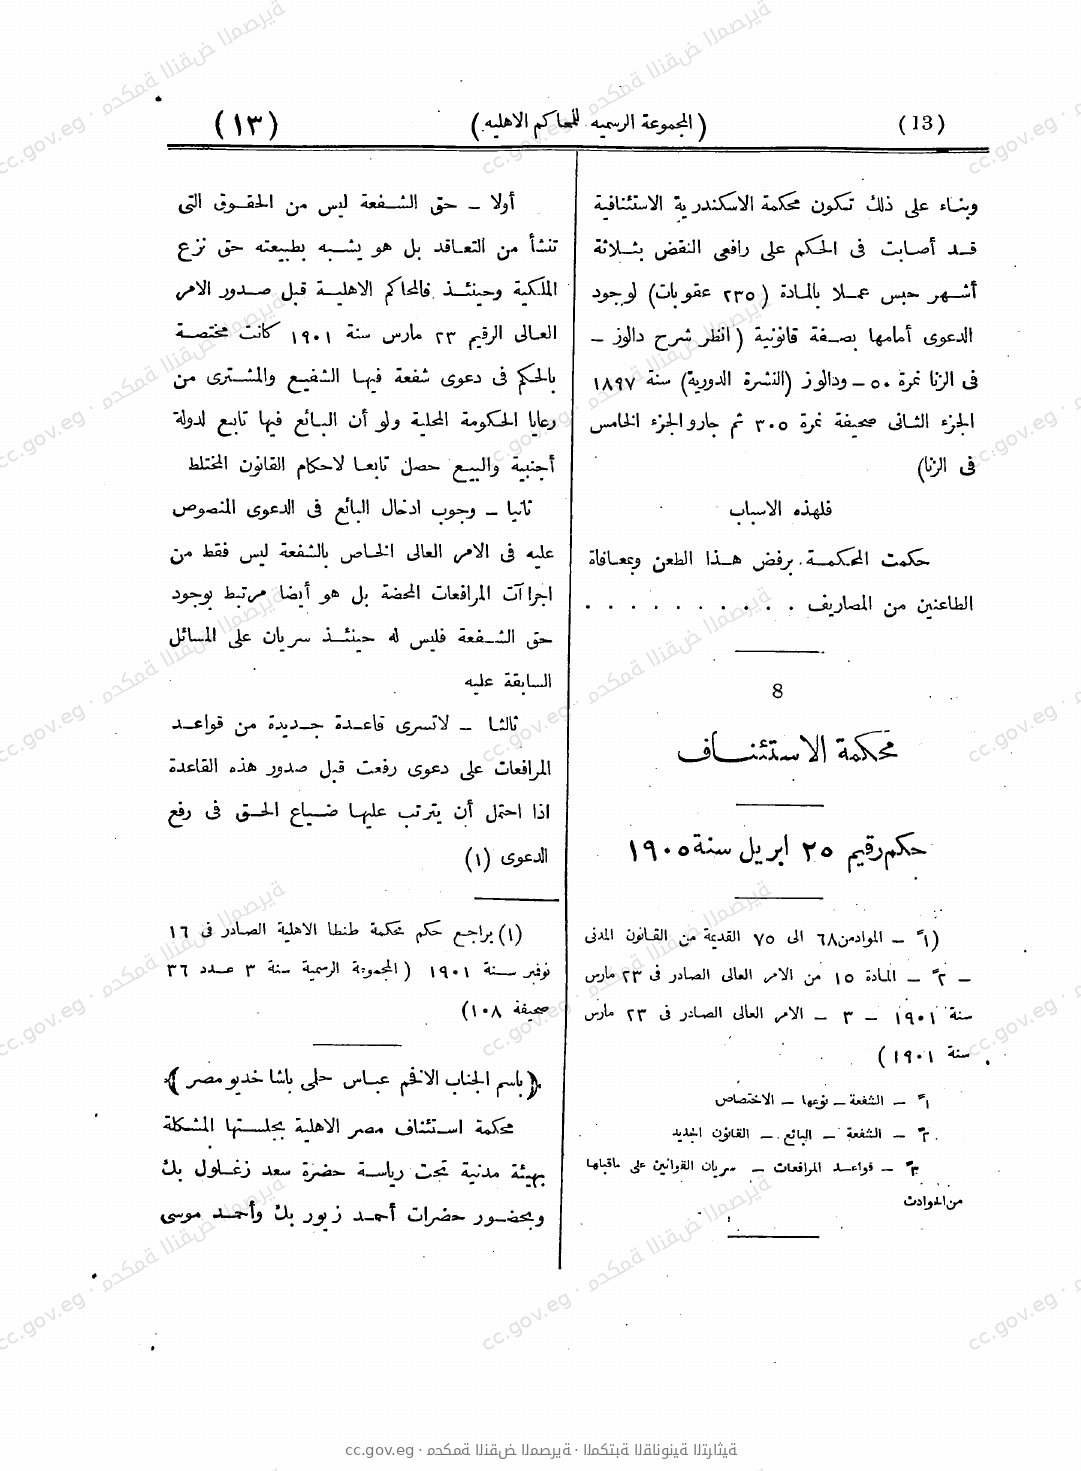 (13)
(المجموعة الرسميه للمحاكم الاهليه)
(١٣)
وبناء على ذلك تكون محكمة الاسكندرية الاستئنافية
قد أصابت فى الحكم على رافعى النقض بثلاثة
أشهر حبس عملا بالمادة (٢٣٥ عقوبات) لوجود
الدعوى أمامها بصفة قانونية (انظر شرح دالوز –
فى الزنا نمرة ٥٠ – ودالوز (النشرة الدورية) سنة ١٨٩٧
الجزء الثانى صحيفة نمرة ٣٠٥ ثم جارو الجزء الخامس
فى الزنا)
فلهذه الاسباب
حكمت المحكمة برفض هذا الطعن وبمعافاة
الطاعنين من المصاريف . . . . . . . . . .
8
محكمة الاستئناف
حكم رقيم ٢٥ ابريل سنة ١٩٠٥
(١ً – المواد من ٦٨ الى ٧٥ القديمة من القانون المدنى
– ٢ً – المادة ١٥ من الامر العالى الصادر فى ٢٣ مارس
سنة ١٩٠١ – ٣ – الامر العالى الصادر فى ٢٣ مارس
سنة ١٩٠١)
١ً – الشفعة – نوعها – الاختصاص
٢ً – الشفعة – البائع – القانون الجديد
٣ً – قواعد المرافعات – سريان القوانين على ماقبلها
من الحوادث
أولا – حق الشفعة ليس من الحقوق التى
تنشأ من التعاقد بل هو يشبه بطبيعته حق نزع
الملكية وحينئذ فالمحاكم الاهلية قبل صدور الامر
العالى الرقيم ٢٣ مارس سنة ١٩٠١ كانت مختصة
بالحكم فى دعوى شفعة فيها الشفيع والمشترى من
رعايا الحكومة المحلية ولو أن البائع فيها تابع لدولة
أجنبية والبيع حصل تابعا لاحكام القانون المختلط
ثانيا – وجوب ادخال البائع فى الدعوى المنصوص
عليه فى الامر العالى الخاص بالشفعة ليس فقط من
اجراآت المرافعات المحضة بل هو أيضا مرتبط بوجود
حق الشفعة فليس له حينئذ سريان على المسائل
السابقة عليه
ثالثا – لاتسرى قاعدة جديدة من قواعد
المرافعات على دعوى رفعت قبل صدور هذه القاعدة
اذا احتمل أن يترتب عليها ضياع الحق فى رفع
الدعوى (١)
(١) يراجع حكم محكمة طنطا الاهلية الصادر فى ١٦
نوفمبر سنة ١٩٠١ (المجموعة الرسمية سنة ٣ عدد ٣٦
صحيفة ١٠٨)
﴿باسم الجناب الافخم عباس حلمى باشا خديو مصر﴾
محكمة استئناف مصر الاهلية بجلستها المشكلة
بهيئة مدنية تحت رياسة حضرة سعد زغلول بك
وبحضور حضرات أحمد زيور بك وأحمد موسى
cc.gov.eg · محكمة النقض المصرية · المكتبة القانونية التراثية